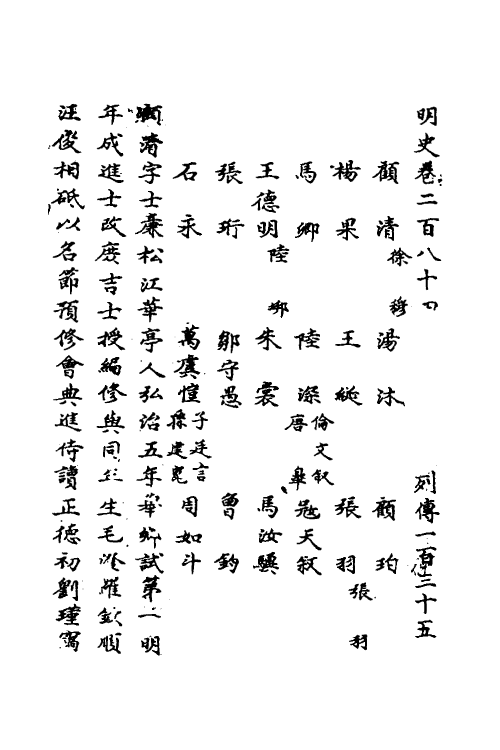 明史卷二百八十四 列傳一百三十五
顧清 徐穆 湯沐 顧玓
楊果 王縝 張羽 張羽
馬卿 陸深 倫文叙 唐皋 冦天叙
王德明 陸 朱裳 馬汝驥
張珩 鄒守愚 曾鈞
石永 萬虞愷 子廷言 孫建崑 周如斗
顧清字士廉松江華亭人弘治五年舉鄉試第一明
年成進士改庶吉士授編修與同年生毛澄羅欽順
汪俊相砥以名節預修會典進侍讀正德初劉瑾竊